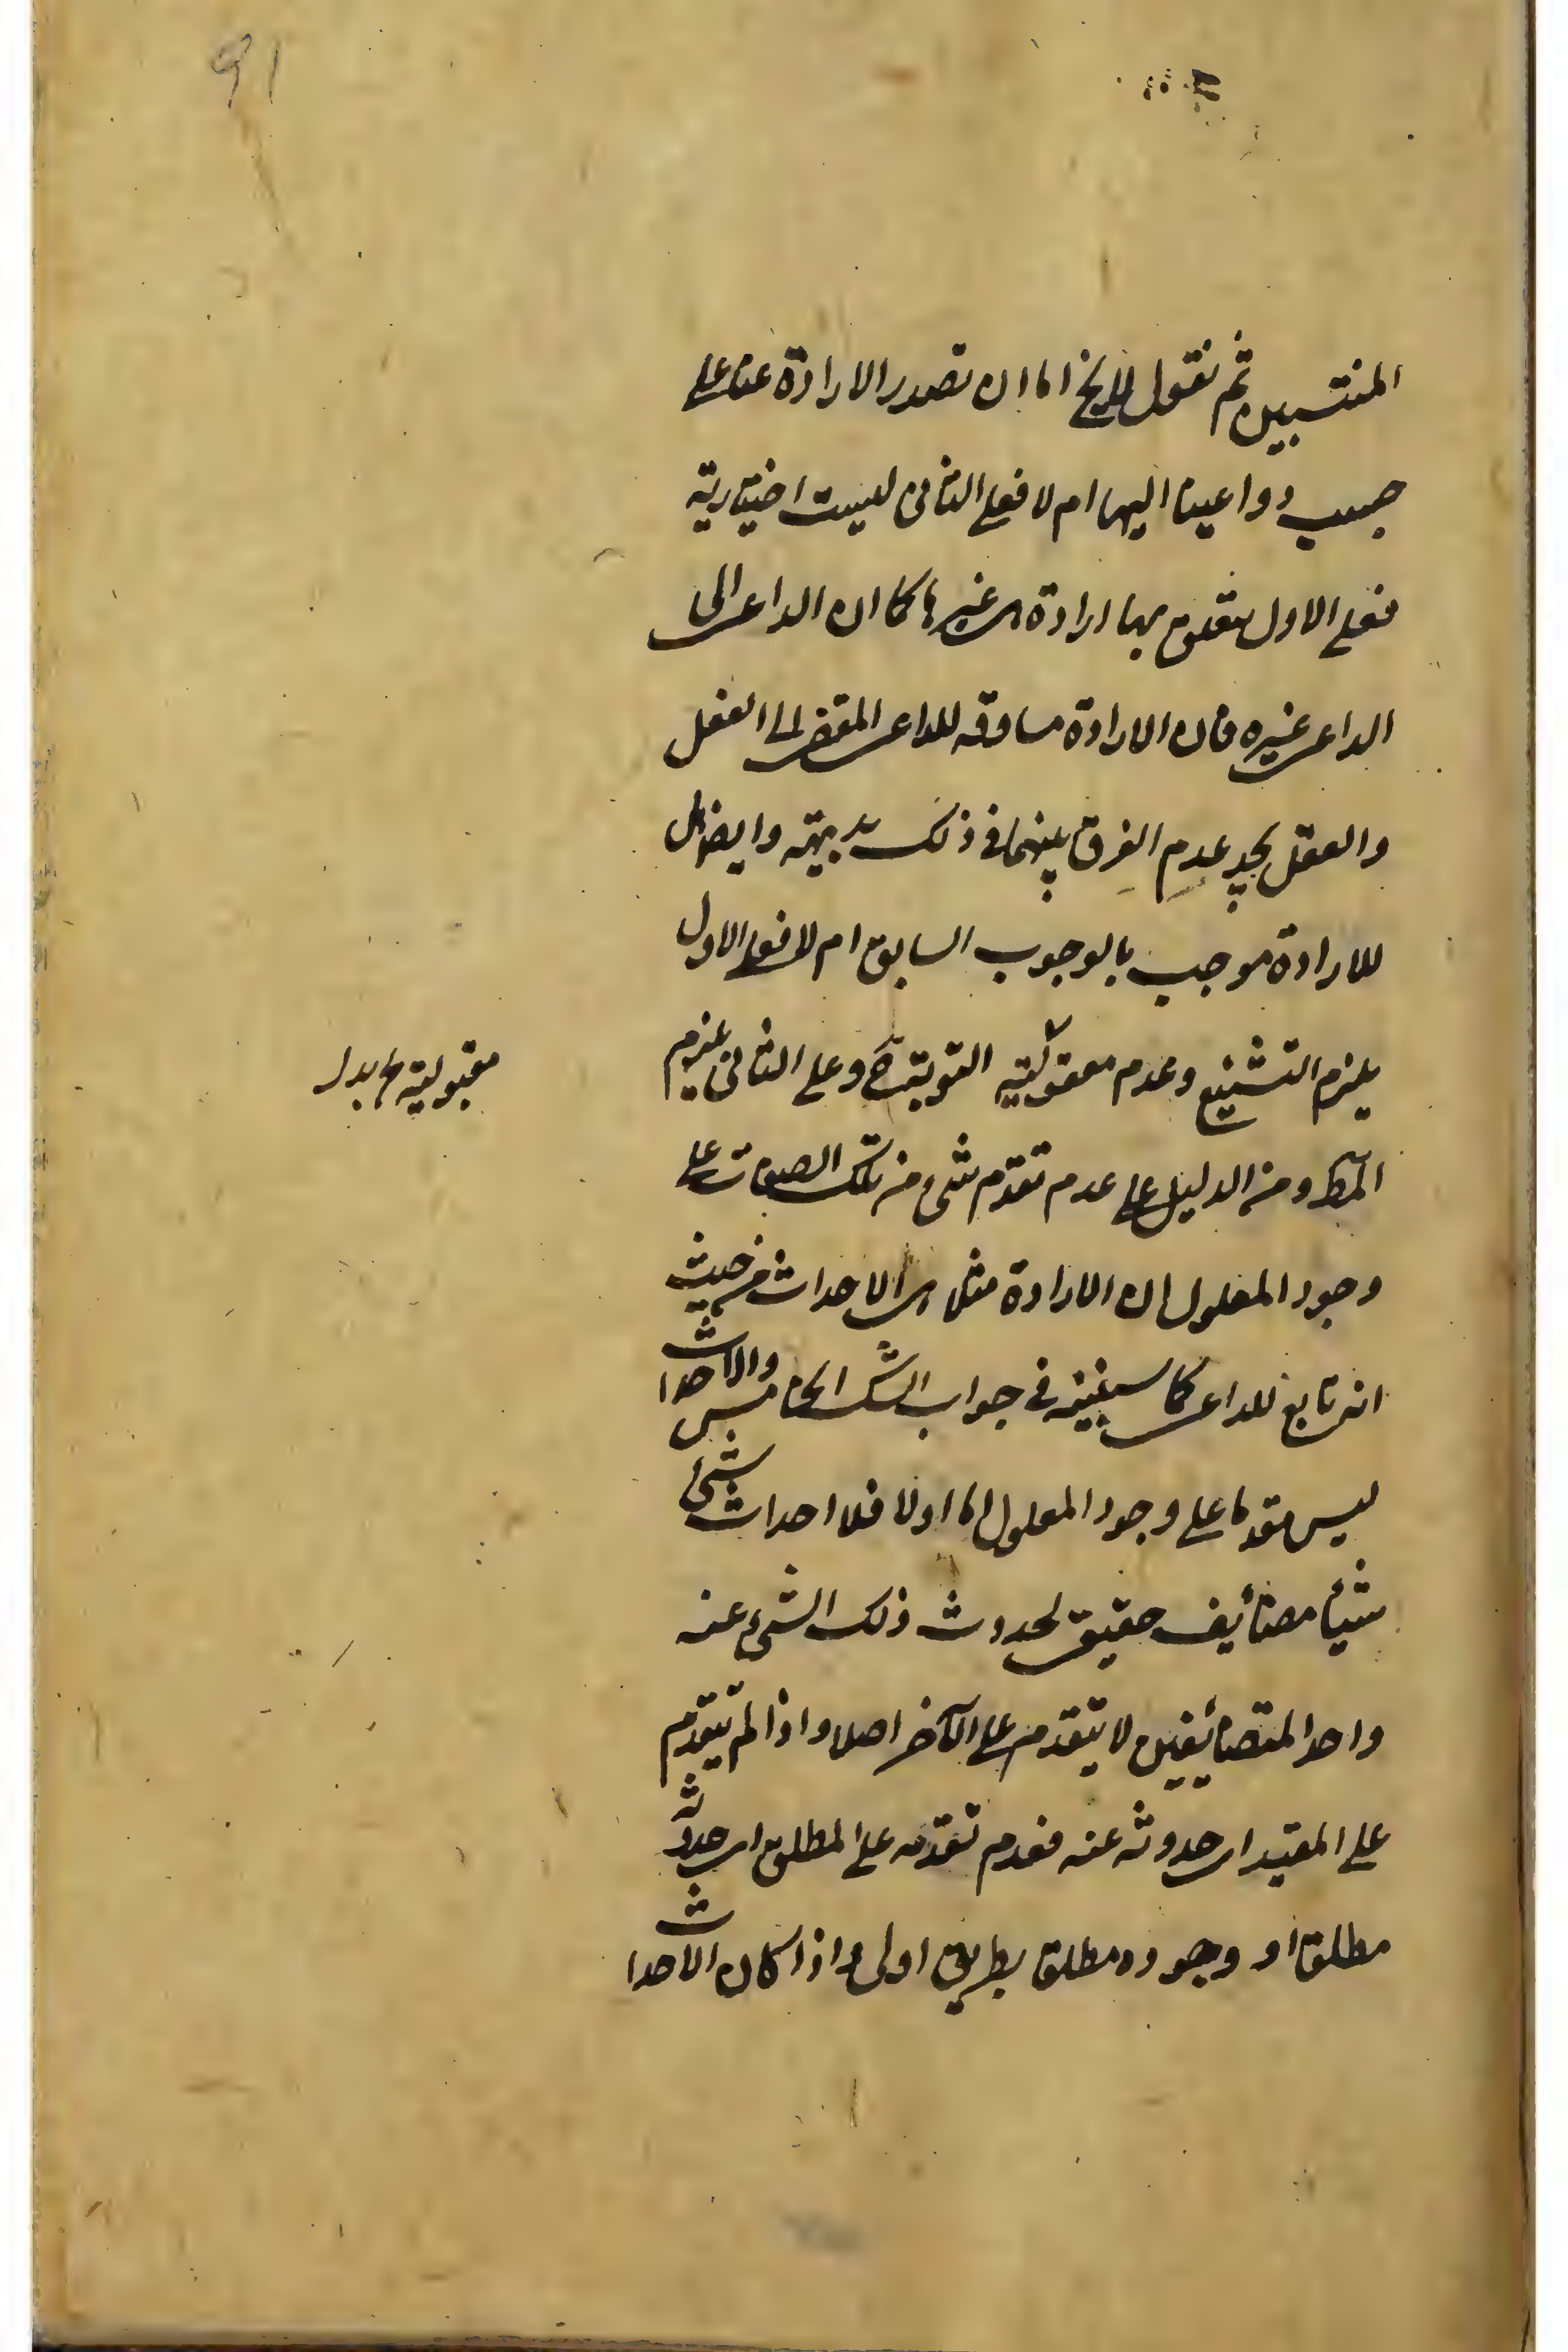 91
المنتسبين ثم نقول اما ان تصدر الارادة عنا على
حسب دواعينا اليها ام لا فعلى الثانى ليست اختيارية
فعلى الاول يتعلق بها ارادة هى غيرها كما ان الداعى الى
الداعى غيره فان الارادة مساوقه للداعى المقتضى الى الفعل
والعقل يجد عدم الفرق بينهما فى ذلك بديهة وايضا هل
للارادة موجب بالوجوب السابق ام لا فعلى الاول
يلزم التشنيع وعدم معقولية التوبيخ وعلى الثانى يلزم
مقبولية بدل
المط ومن الدليل على عدم تقدم شئ من تلك الصفات على
وجود المعلول ان الارادة مثلا هى الاحداث من حيث
انه تابع للداعى كما سنبينه فى جواب الشك الخامس والاحداث
ليس مقدما على وجود المعلول اما اولا فلان احداث شئ
شيئا مضائف حقيقى لحدوث ذلك الشئ عنه
واحد المتضائفين لا يتقدم على الآخر اصلا واذا لم يتقدم
على المقيد اى حدوثه عنه فعدم تقدمه على المطلق اى حدوثه
مطلقا او وجوده مطلقا بطريق اولى واذا كان الاحداث